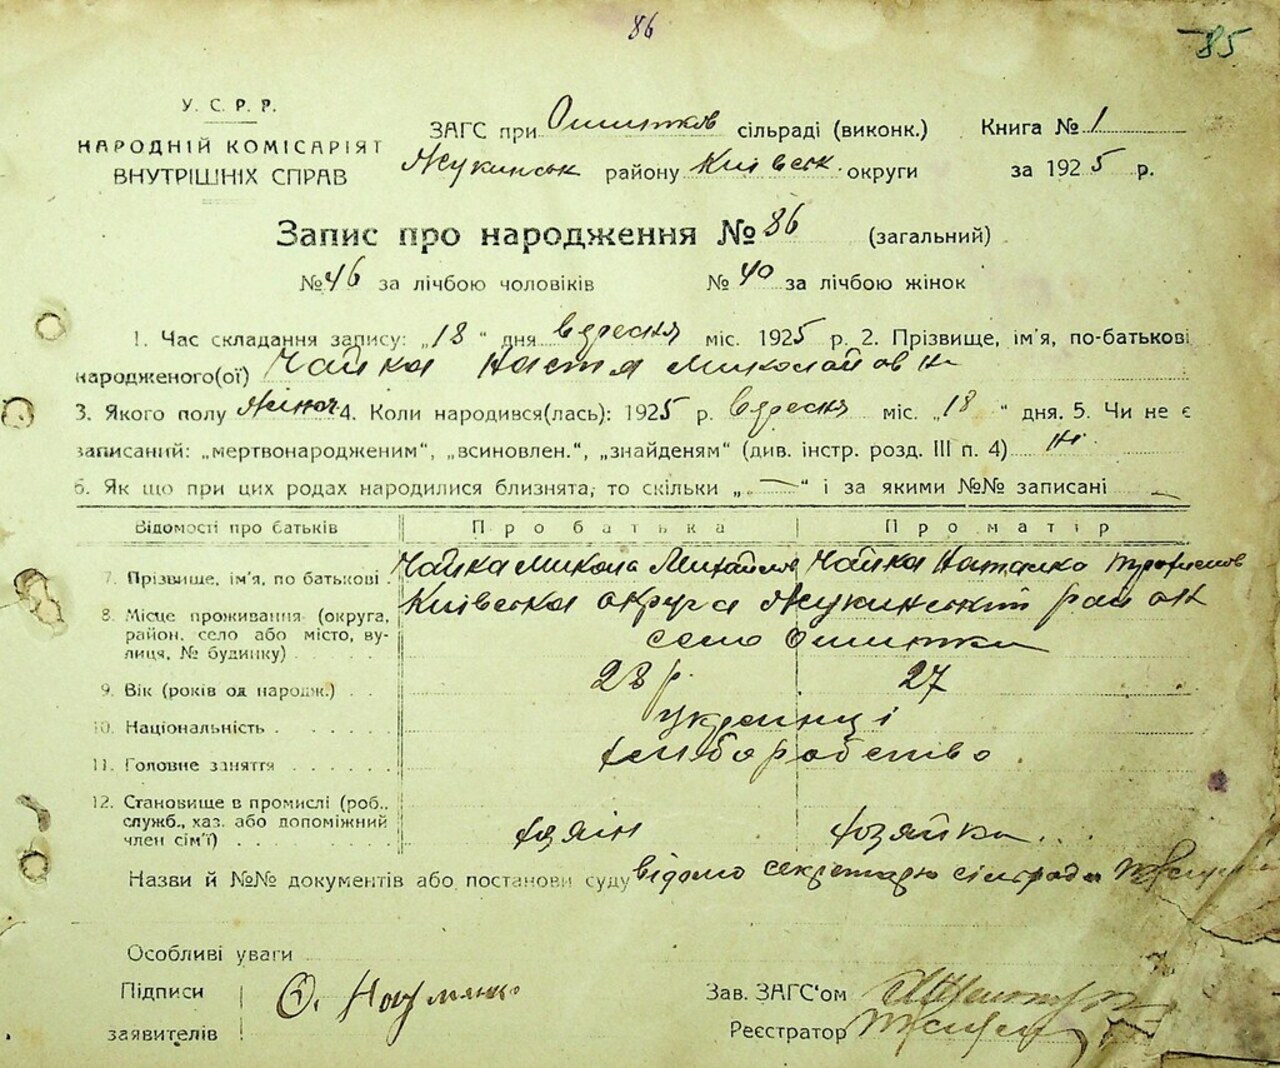 86
85
У. С. Р. Р.
НАРОДНІЙ КОМІСАРІЯТ
ВНУТРІШНІХ СПРАВ
ЗАГС при Ошитков сільраді (виконк.)
Жукинськ району Київськ. округи
Книга № 1
за 1925 р.
Запис про народження № 86 (загальний)
№ 46 за лічбою чоловіків № 40 за лічбою жінок
1. Час складання запису: „18" дня вересня міс. 1925 р. 2. Прізвище, ім'я, по-батькові
народженого(ої) Чайка Настя Миколайовна
3. Якого полу жіноч 4. Коли народився(лась): 1925 р. вересня міс. „18" дня. 5. Чи не є
записаний: „мертвонародженим", „всиновлен.", „знайденям" (див. інстр. розд. III п. 4) ні
6. Як що при цих родах народилися близнята, то скільки „—" і за якими №№ записані —
Відомості про батьків Про батька Про матір
7. Прізвище, ім'я, по батькові. Чайка Микола Михайлов Чайка Наталка Трофимов
8. Місце проживання (округа, Київська округа Жукинський район
район, село або місто, ву- село Ошитки
лиця, № будинку)
9. Вік (років од народж.) 28 р. 27
10. Національність українці
11. Головне заняття хліборобство
12. Становище в промислі (роб.,
служб., хаз. або допоміжний
член сім'ї) хазяін хозяйка.
Назви й №№ документів або постанови суду відомо секретарю сільради
Особливі уваги
Підписи
заявителів
О. Науменко
Зав. ЗАГС'ом
Реєстратор